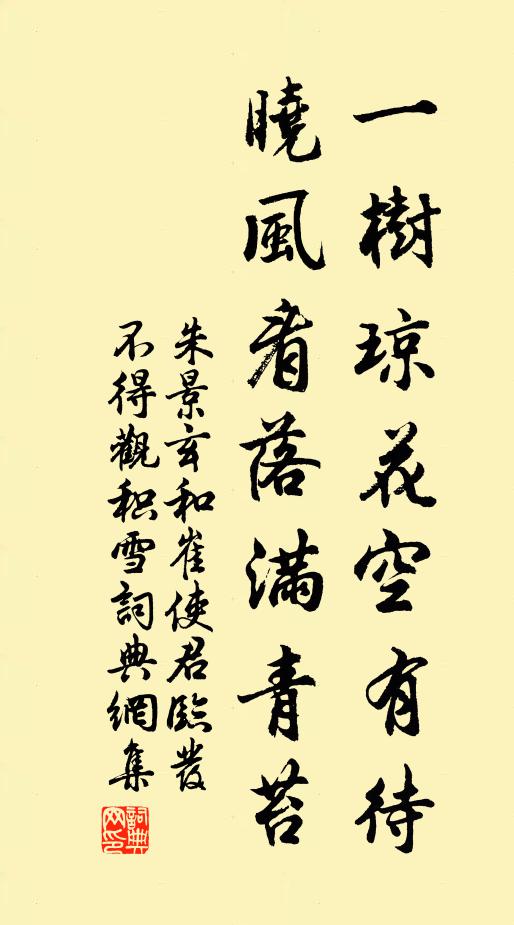 一樹琼花空有待
曉風看落滿青苔
朱景玄和崔使君臨發
不得觀积雪詞典網集
詞典
网印